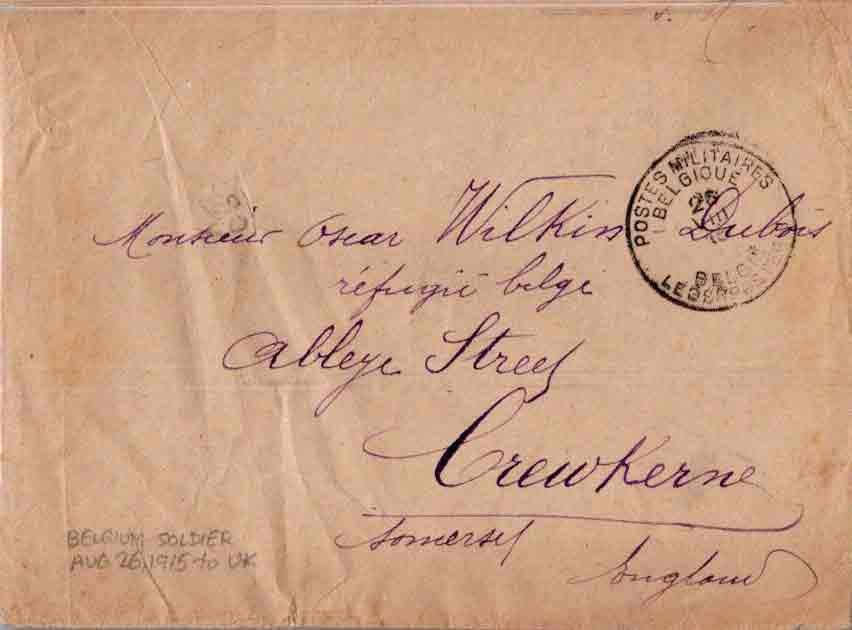 POSTES MILITAIRES
BELGIQUE
26
VIII
15
BELGIE
LEGERPOSTERIJ
Monsieur Oscar Wilkin Dubois
réfugié belge
Abbeye Street
Crewkerne
Somerset
England
BELGIUM SOLDIER
AUG 26, 1915 to UK